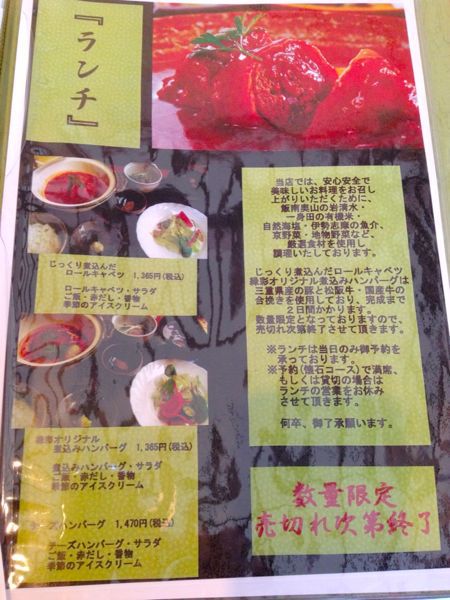 『ランチ』
じっくり煮込んだ
ロールキャベツ 1,365円(税込)
ロールキャベツ・サラダ
ご飯・赤だし・香物
季節のアイスクリーム
緑彩オリジナル
煮込みハンバーグ 1,365円(税込)
煮込みハンバーグ・サラダ
ご飯・赤だし・香物
季節のアイスクリーム
チーズハンバーグ 1,470円(税込)
チーズハンバーグ・サラダ
ご飯・赤だし・香物
季節のアイスクリーム
当店では、安心安全で
美味しいお料理をお召し
上がりいただくために、
飯南奥山の岩清水・
一身田の有機米・
自然海塩・伊勢志摩の魚介、
京野菜・地物野菜など、
厳選食材を使用し
調理いたしております。
じっくり煮込んだロールキャベツ
緑彩オリジナル煮込みハンバーグは
三重県産の豚と松阪牛・国産牛の
合挽きを使用しており、完成まで
2日間かかります。
数量限定となっておりますので、
売切れ次第終了させて頂きます。
※ランチは当日のみ御予約を
承っております。
※予約(懐石コース)で満席、
もしくは貸切の場合は
ランチの営業をお休み
させて頂きます。
何卒、御了承願います。
数量限定
売切れ次第終了